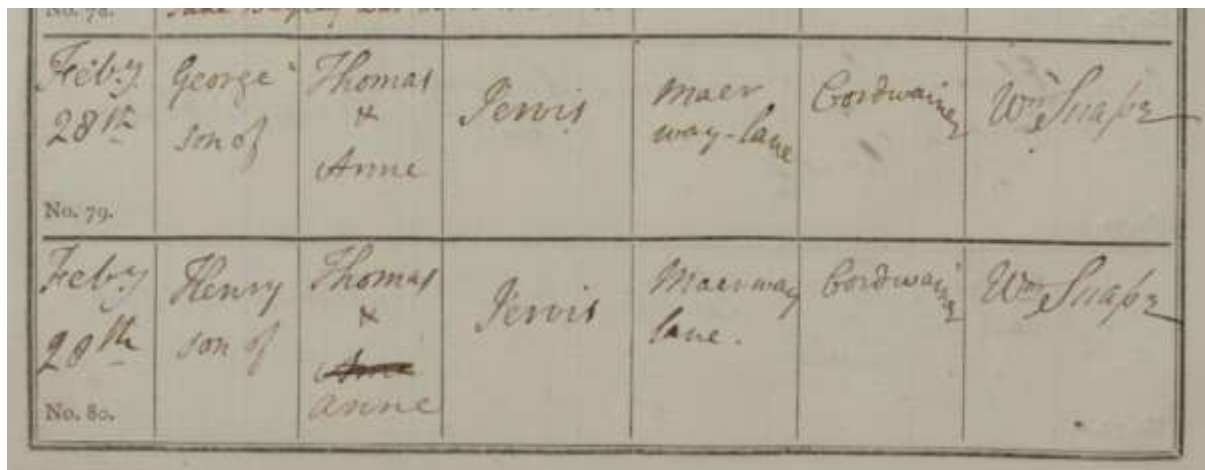 No. 78.
Feby 28th
George son of
Thomas & Anne
Jervis
Maer way-lane
Cordwainer
Wm Snape
No. 79.
Feby 28th
Henry son of
Thomas & Anne
Jervis
Maerway lane.
Cordwainer
Wm Snape
No. 80.